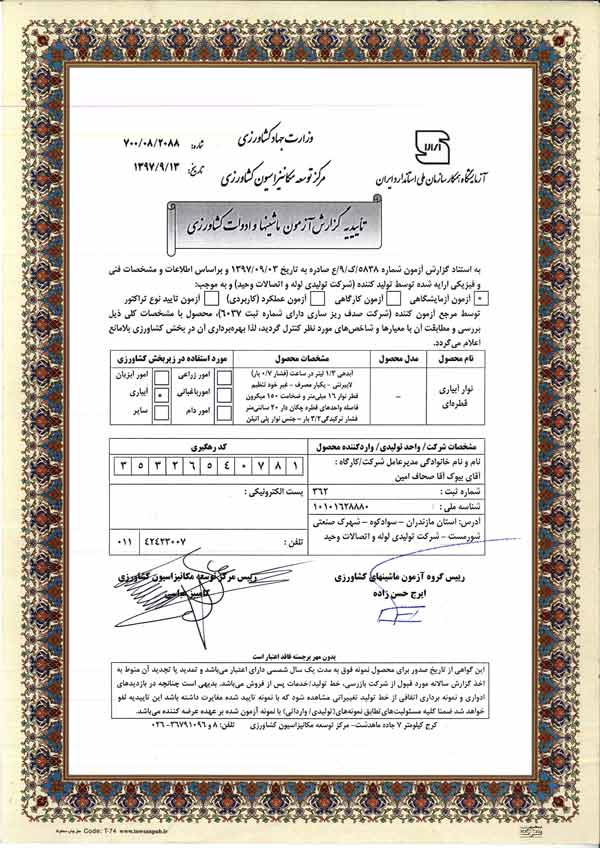 آزمایشگاه همکار سازمان ملی استاندارد ایران
وزارت جهاد کشاورزی
مرکز توسعه مکانیزاسیون کشاورزی
شماره: ۷۰۰/۰۸/۲۰۸۸
تاریخ: ۱۳۹۷/۹/۱۳
تاییدیه گزارش آزمون ماشینها و ادوات کشاورزی
به استناد گزارش آزمون شماره ۵۸۳۸/ک/۹/ع صادره به تاریخ ۱۳۹۷/۰۹/۰۳ و براساس اطلاعات و مشخصات فنی
و فیزیکی ارایه شده توسط تولید کننده (شرکت تولیدی لوله و اتصالات وحید) و به موجب:
* آزمون آزمایشگاهی آزمون کارگاهی آزمون عملکرد (کاربردی) آزمون تایید نوع تراکتور
توسط مرجع آزمون کننده (شرکت صدف ریز ساری دارای شماره ثبت ۶۰۳۷)، محصول با مشخصات کلی ذیل
بررسی و مطابقت آن با معیارها و شاخص‌های مورد نظر کنترل گردید، لذا بهره‌برداری آن در بخش کشاورزی بلامانع
اعلام می‌گردد.
نام محصول مدل محصول مشخصات محصول مورد استفاده در زیربخش کشاورزی
نوار آبیاری
قطره‌ای
-
آبدهی ۱/۳ لیتر در ساعت (فشار ۰/۷ بار)
لابیرنتی - یکبار مصرف - غیر خود تنظیم
قطر نوار ۱۶ میلی‌متر و ضخامت ۱۵۰ میکرون
فاصله واحدهای قطره چکان دار ۲۰ سانتی‌متر
فشار ترکیدگی ۳/۲ بار - جنس نوار پلی اتیلن
امور زراعی امور آبزیان
امورباغبانی آبیاری *
امور دام سایر
مشخصات شرکت/ واحد تولیدی/ واردکننده محصول کد رهگیری
نام و نام خانوادگی مدیرعامل شرکت/کارگاه :
آقای بیوک آقا صحاف امین
۳ ۵ ۳ ۲ ۶ ۵ ۴ ۰ ۷ ۸ ۱
شماره ثبت : ۳۶۲
شناسه ملی : ۱۰۱۰۱۶۲۸۸۸۰
پست الکترونیکی :
آدرس: استان مازندران - سوادکوه - شهرک صنعتی
شورمست - شرکت تولیدی لوله و اتصالات وحید
تلفن : ۴۲۴۲۳۰۰۷ ۰۱۱
رییس گروه آزمون ماشینهای کشاورزی
ایرج حسن زاده
رییس مرکز توسعه مکانیزاسیون کشاورزی
کامبیز عباسی
بدون مهر برجسته فاقد اعتبار است
این گواهی از تاریخ صدور برای محصول نمونه فوق به مدت یک سال شمسی دارای اعتبار می‌باشد و تمدید یا تجدید آن منوط به
اخذ گزارش سالانه مورد قبول از شرکت بازرسی، خط تولید/خدمات پس از فروش می‌باشد. بدیهی است چنانچه در بازدیدهای
ادواری و نمونه برداری اتفاقی از خط تولید تغییراتی مشاهده شود که با نمونه تایید شده مغایرت داشته باشد این تاییدیه لغو
خواهد شد ضمنا کلیه مسئولیت‌های تطابق نمونه‌های (تولیدی/ وارداتی) با نمونه آزمون شده بر عهده عرضه کننده می‌باشد.
کرج کیلومتر ۷ جاده ماهدشت- مرکز توسعه مکانیزاسیون کشاورزی تلفن: ۸ و ۳۶۷۹۱۰۹۶-۰۲۶
Code: T-74 www.tawsaapub.ir